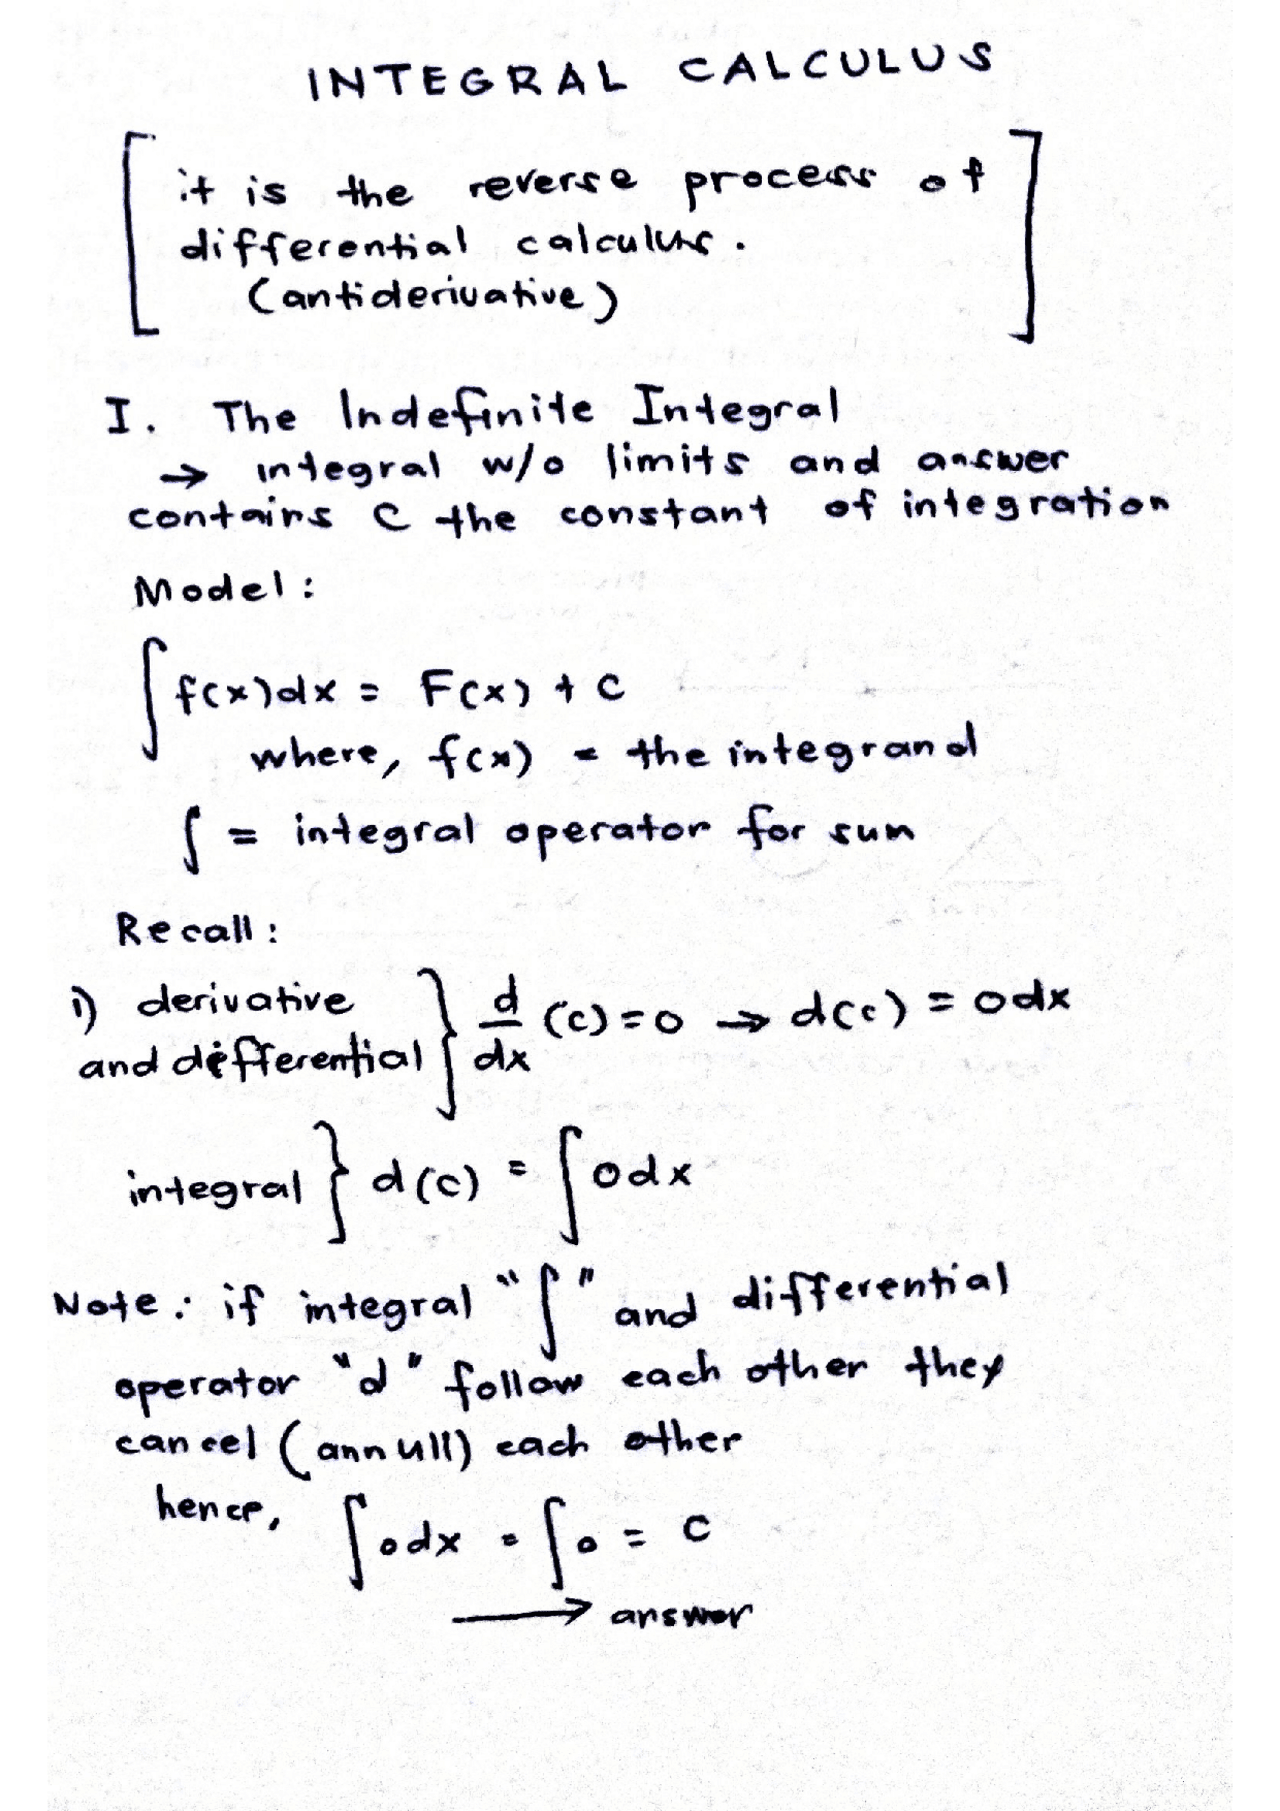 INTEGRAL CALCULUS
it is the reverse process of
differential calculus.
(antiderivative)
I. The Indefinite Integral
→ integral w/o limits and answer
contains C the constant of integration
Model:
∫ f(x)dx = F(x) + C
where, f(x) = the integrand
∫ = integral operator for sum
Recall:
1) derivative and differential } d/dx (c) = 0 → d(c) = 0dx
integral } d(c) = ∫ 0dx
Note: if integral "∫" and differential
operator "d" follow each other they
cancel (annull) each other
hence, ∫ 0dx = ∫ 0 = C
→ answer